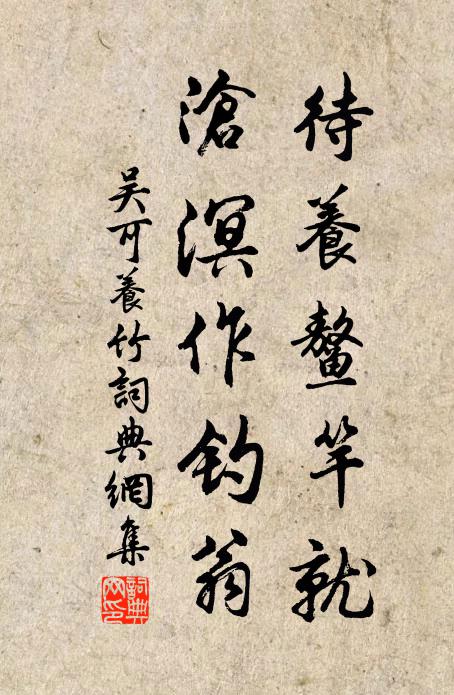 待養鰲竿就
滄溟作釣翁
吴可養竹詞典網集
詞典
网印